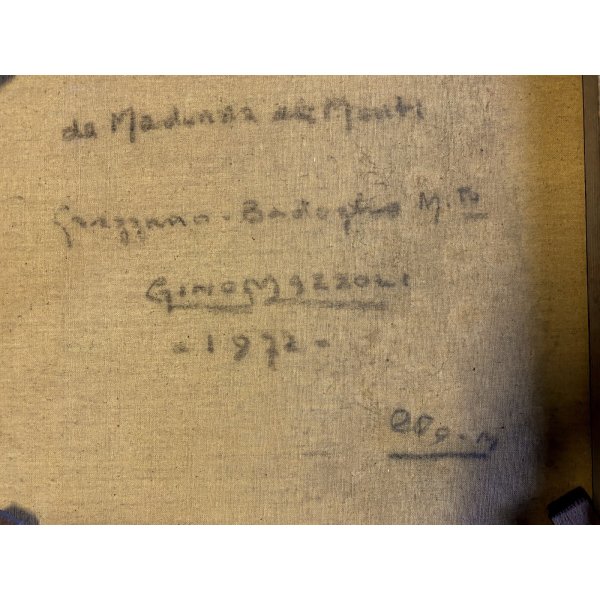 da Madonna dei Monti
Grazzano - Badoglio M.to
GINO MAZZOLI
- 1972 -